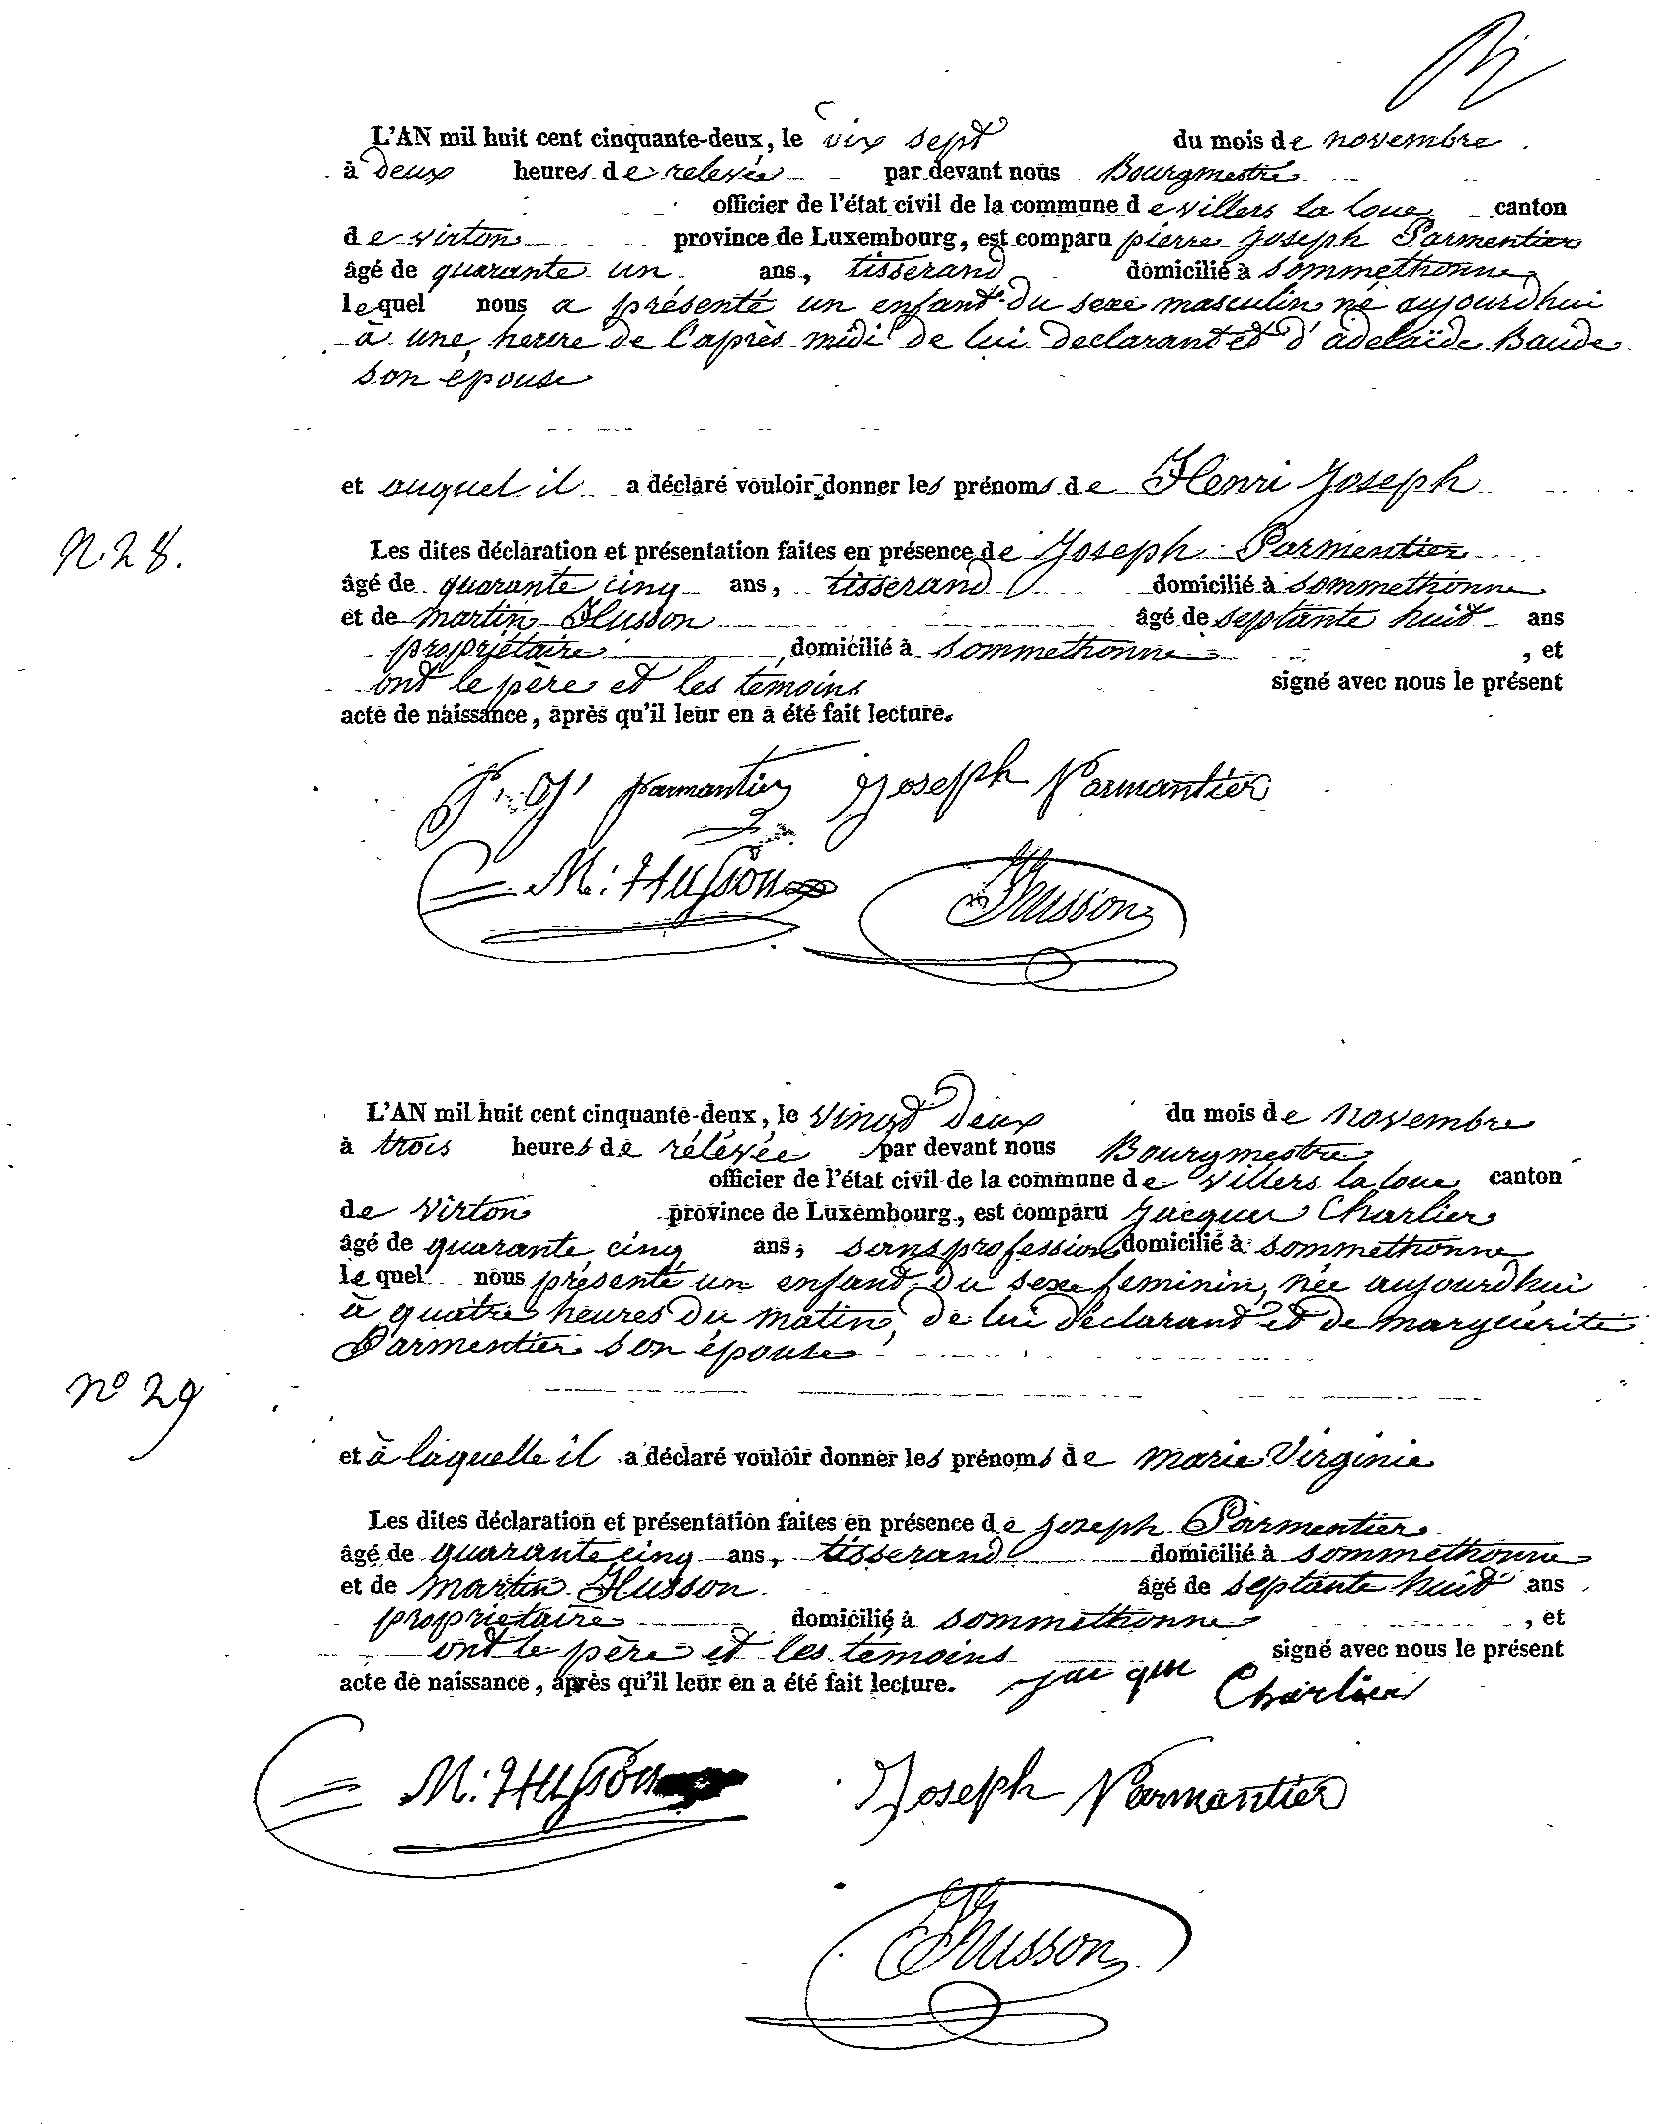 L'AN mil huit cent cinquante-deux, le dix sept du mois de novembre
à deux heures de relevée par devant nous Bourgmestre
officier de l'état civil de la commune de villers la loue canton
de virton province de Luxembourg, est comparu pierre Joseph Parmentier
âgé de quarante un ans, tisserand domicilié à sommethonne
lequel nous a présenté un enfant du sexe masculin né aujourdhui
à une heure de l'après midi de lui declarant et d'adelaïde Baude
son epouse
et auquel il a déclaré vouloir donner les prénoms de Henri Joseph
N. 28.
Les dites déclaration et présentation faites en présence de Joseph Parmentier
âgé de quarante cinq ans, tisserand domicilié à sommethonne
et de martin Husson âgé de septante huit ans
propriétaire domicilié à sommethonne, et
ont le père et les témoins signé avec nous le présent
acte de naissance, après qu'il leur en a été fait lecture.
P. J. parmantier Joseph Parmantier
M: Husson Husson
L'AN mil huit cent cinquante-deux, le vingt deux du mois de novembre
à trois heures de rélévée par devant nous Bourgmestre
officier de l'état civil de la commune de villers la loue canton
de virton province de Luxembourg, est comparu Jacques Charlier
âgé de quarante cinq ans, sans profession domicilié à sommethonne
le quel nous présenté un enfant du sexe feminin, née aujourdhui
à quatre heures du matin, de lui déclarant et de marguérite
Parmentier son épouse
n° 29
et à laquelle il a déclaré vouloir donner les prénoms de marie Virginie
Les dites déclaration et présentation faites en présence de Joseph Parmentier
âgé de quarante cinq ans, tisserand domicilié à sommethonne
et de martin Husson âgé de septante huit ans
propriétaire domicilié à sommethonne, et
ont le père et les témoins signé avec nous le présent
acte de naissance, après qu'il leur en a été fait lecture. jai que Charlier
M: Husson Joseph Parmantier
Husson